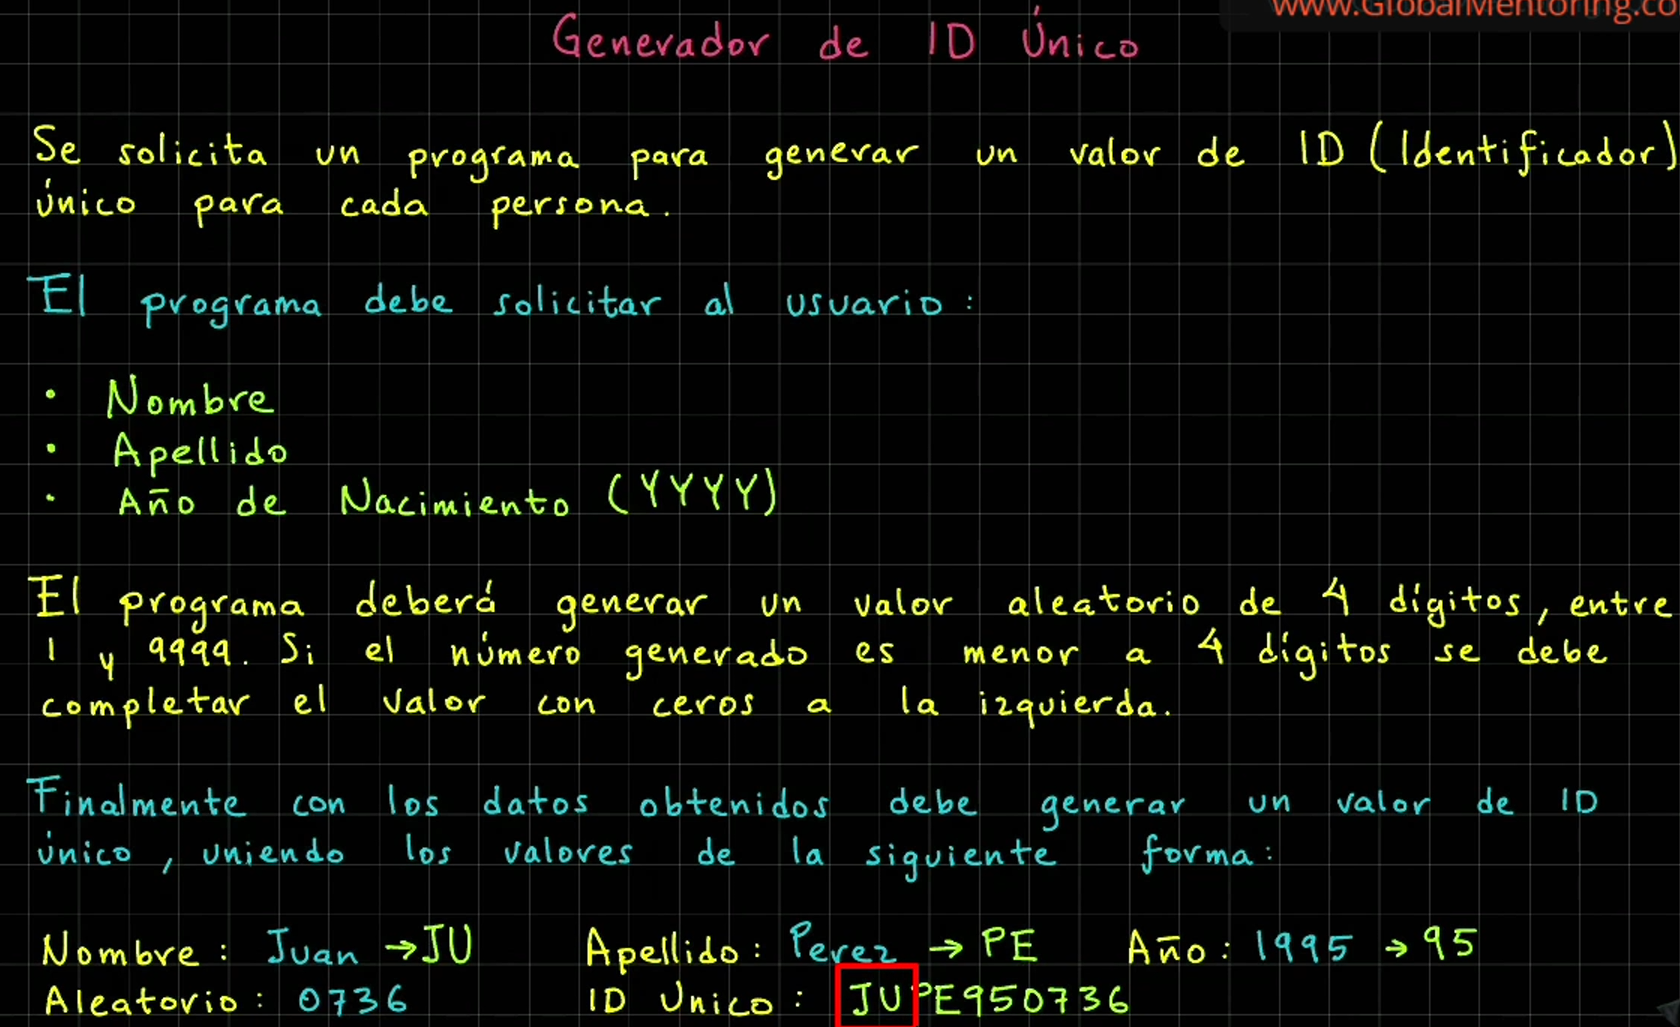 www.GlobalMentoring.co
Generador de ID Único
Se solicita un programa para generar un valor de ID (Identificador)
único para cada persona.
El programa debe solicitar al usuario:
• Nombre
• Apellido
• Año de Nacimiento (YYYY)
El programa deberá generar un valor aleatorio de 4 dígitos, entre
1 y 9999. Si el número generado es menor a 4 dígitos se debe
completar el valor con ceros a la izquierda.
Finalmente con los datos obtenidos debe generar un valor de ID
único, uniendo los valores de la siguiente forma:
Nombre: Juan → JU Apellido: Perez → PE Año: 1995 → 95
Aleatorio: 0736 ID Unico: JUPE950736